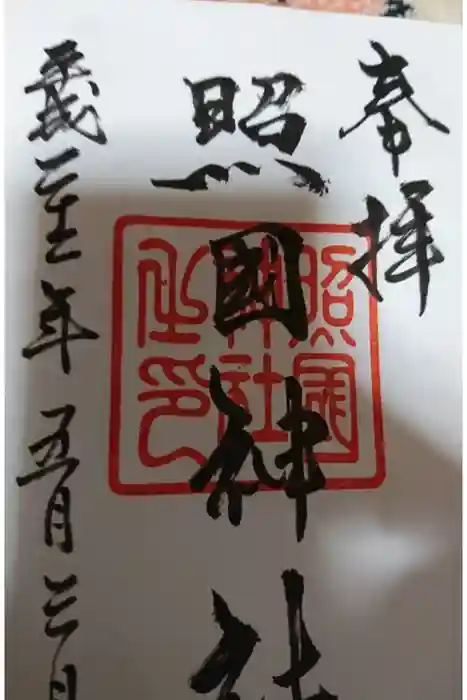 奉拝
照國神社
平成二十年五月三日
照國
神社
之印